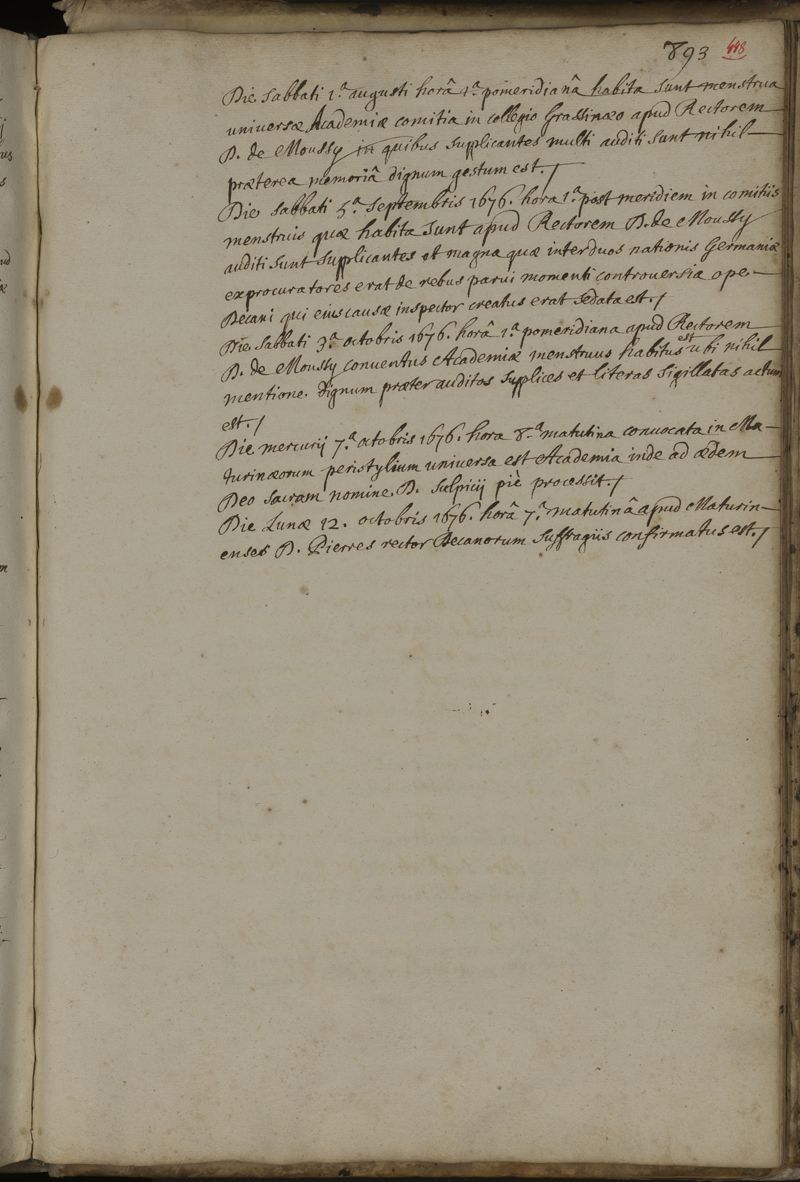 893 448
Die Sabbati 1.ª augusti horâ 1.ª pomeridianâ habita sunt menstrua
universæ Academiæ comitia in collegio Grassinæo apud Rectorem
D. de Moussy in quibus supplicantes multi auditi sunt nihil
præterea memoriâ dignum gestum est./
Die Sabbati 5.ª Septembris 1676. hora 1.ª post meridiem in comitiis
menstruis quæ habita sunt apud Rectorem D. de Moussy
auditi sunt supplicantes et magna quæ inter duos nationis Germaniæ
exprocuratores erat de rebus parui momenti controuersia ope-
Decani qui eius causæ inspector creatus erat sedata est./
Die Sabbati 3.ª octobris 1676. horâ 1.ª pomeridiana apud Rectorem
D. de Moussy conuentus Academiæ menstruus habitus est ubi nihil
mentione dignum præter auditos supplices et literas sigillatas actum
est./
Die mercurij 7.ª octobris 1676. hora 8.ª matutina conuocata in Ma-
turinæorum peristylium universa est Academia inde ad ædem
Deo sacram nomine D. Sulpicij piè processit./
Die Lunæ 12. octobris 1676. horâ 7.ª matutinâ apud Maturin-
enses D. Pierres rector Decanorum suffragiis confirmatus est./